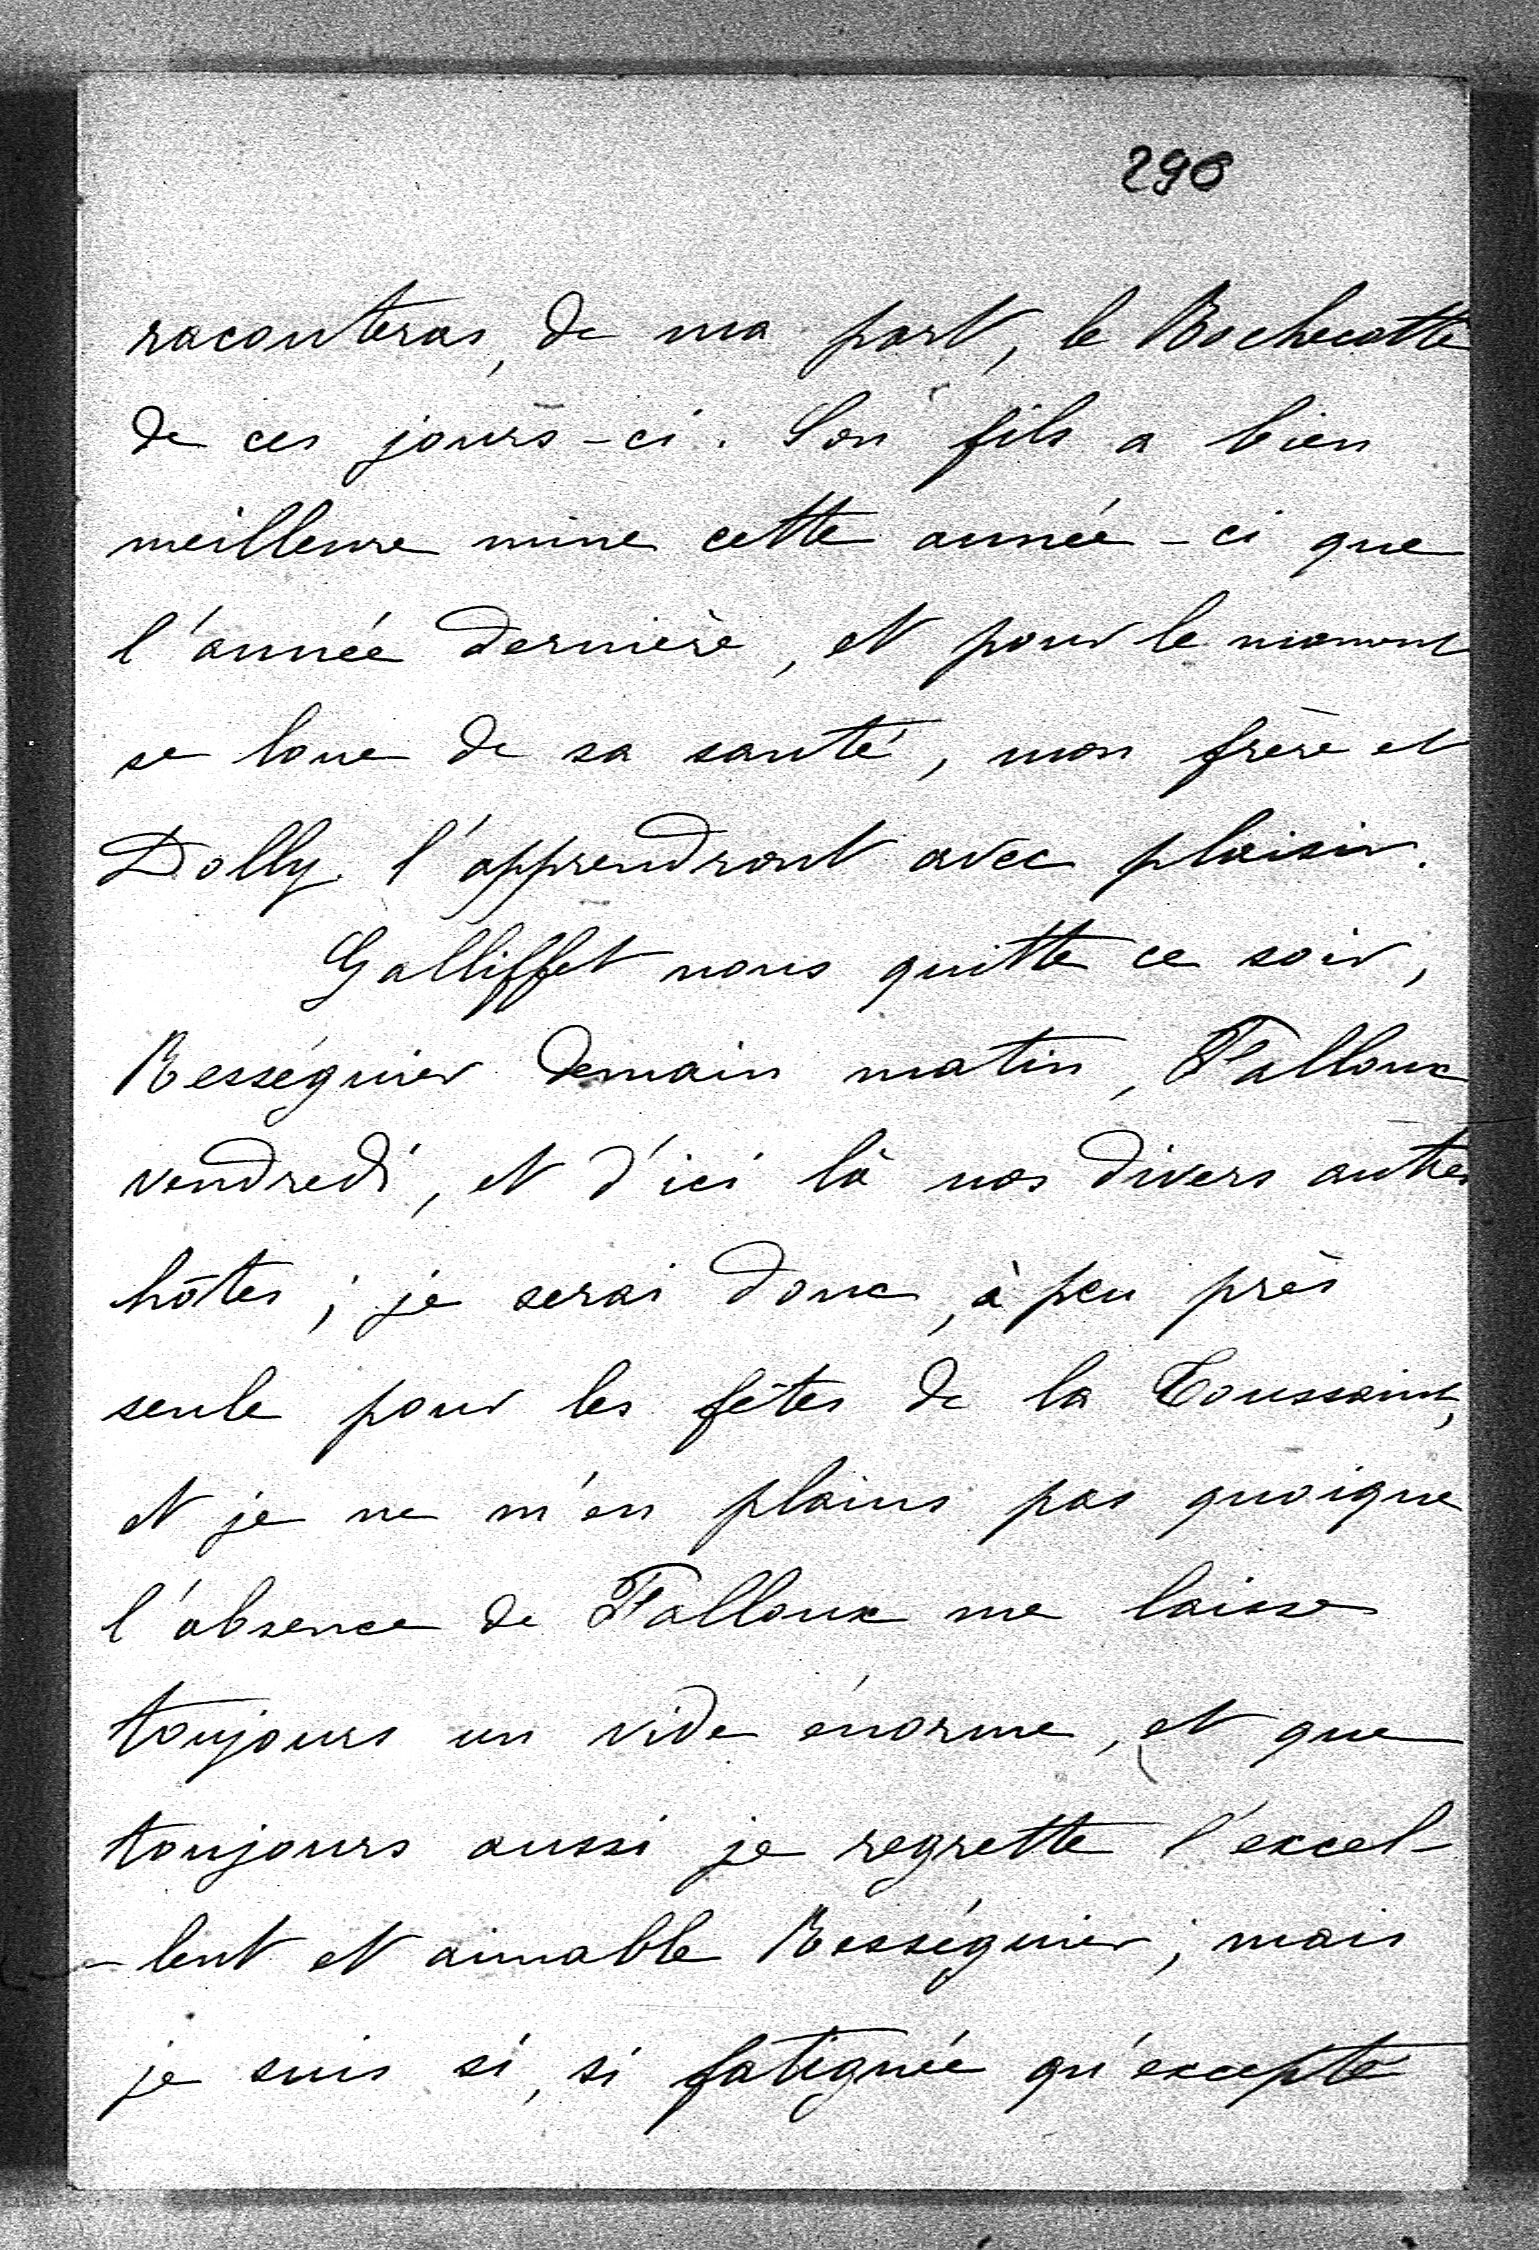 296
raconteras, de ma part, le Rochecotte
de ces jours-ci. Son fils a bien
meilleure mine cette année-ci que
l'année dernière, et pour le moment
se loue de sa santé, mon frère et
Dolly l'apprendront avec plaisir.
Galliffet nous quitte ce soir,
Rességuier demain matin, Falloux
vendredi, et d'ici là nos divers autres
hôtes ; je serai donc, à peu près
seule pour les fêtes de la Toussaint,
et je ne m'en plains pas quoique
l'absence de Falloux me laisse
toujours un vide énorme, et que
toujours aussi je regrette l'excel-
-lent et aimable Rességuier ; mais
je suis si, si fatiguée qu'excepté